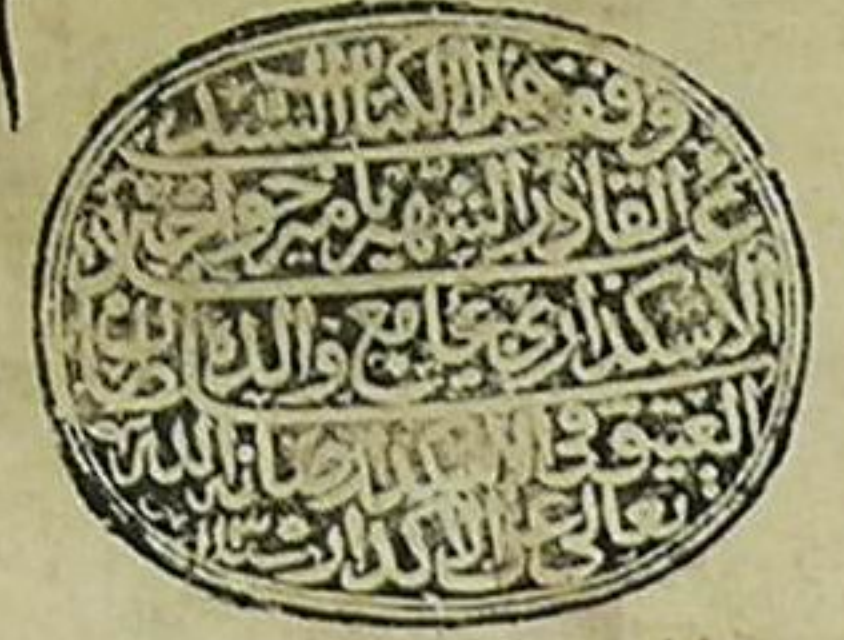 وقف هذا الكتاب السيد
عبد القادر الشهير بامير خواجه
الاسكداري بجامع والده
العتيق في الاسكدار صانه الله
تعالى عن الاكدار سنة